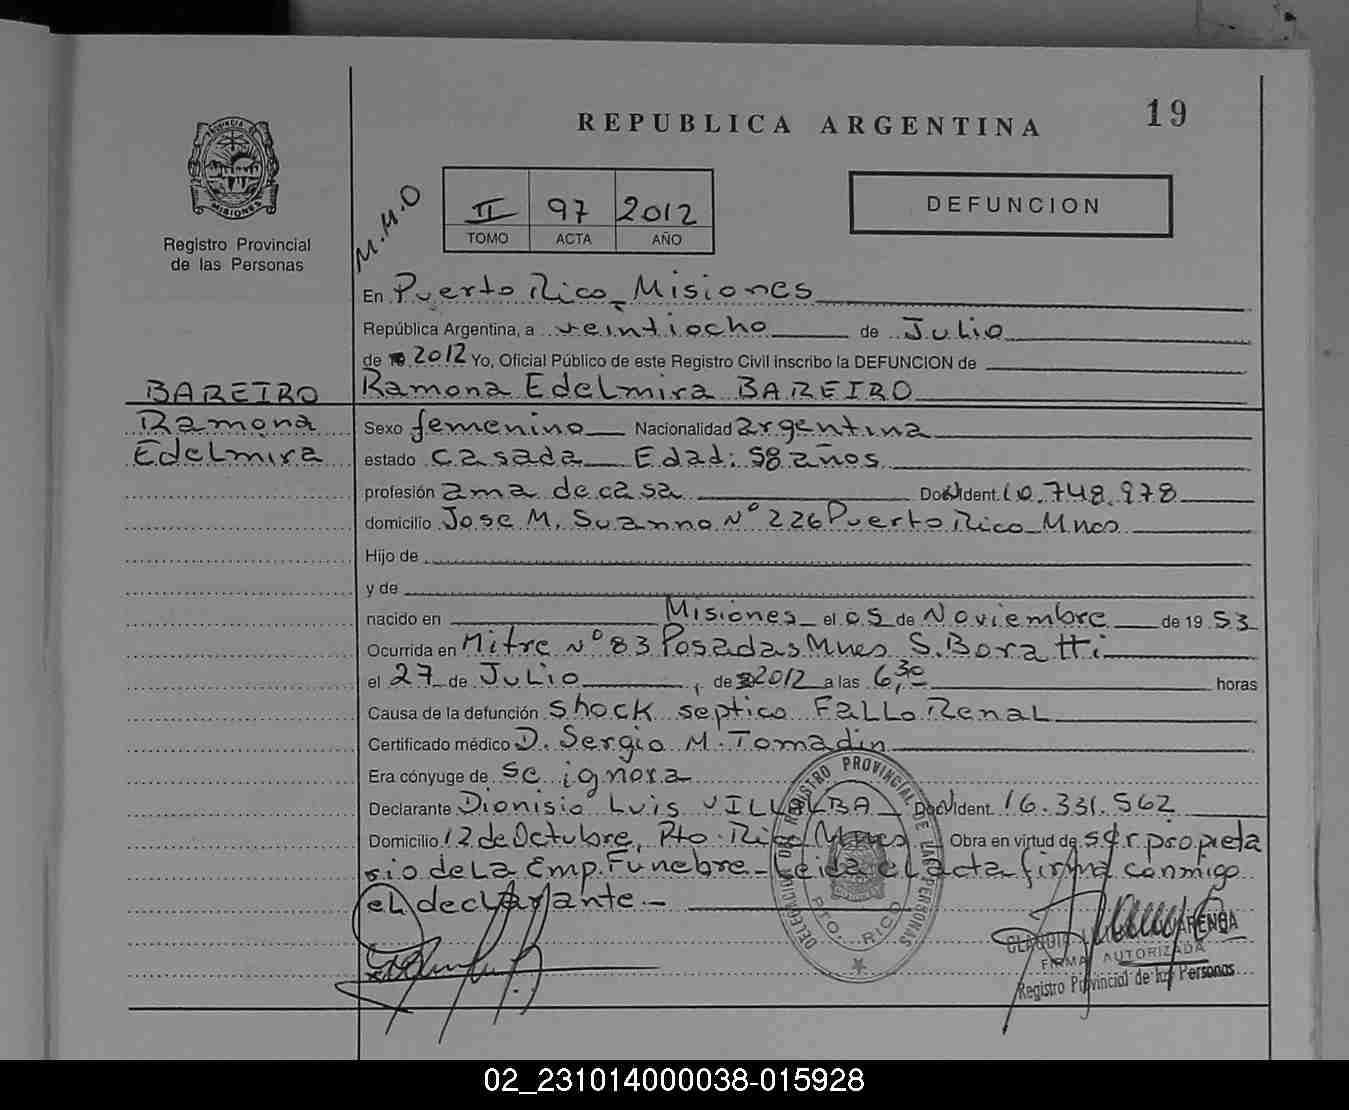 19
REPUBLICA ARGENTINA
PROVINCIA DE
MISIONES
Registro Provincial
de las Personas
M.M.O
II 97 2012
TOMO ACTA AÑO
DEFUNCION
En Puerto Rico Misiones
República Argentina, a veintiocho de Julio
de 2012 Yo, Oficial Público de este Registro Civil inscribo la DEFUNCION de
BAREIRO
Ramona Edelmira BAREIRO
Ramona
Sexo femenino Nacionalidad argentina
Edelmira
estado casada Edad: 58 años
profesión ama de casa Doc Ident. 10.748.978
domicilio Jose M. Suanno N° 226 Puerto Rico Mnes
Hijo de
y de
nacido en Misiones el 05 de Noviembre de 19 53
Ocurrida en Mitre N° 83 Posadas Mnes S. Boratti
el 27 de Julio, de 2012 a las 6,30 horas
Causa de la defunción Shock septico Fallo Renal
Certificado médico D. Sergio M. Tomadin
Era cónyuge de se ignora
Declarante Dionisio Luis VILLALBA Doc Ident. 16.331.562
Domicilio 12 de Octubre, Pto. Rico Mnes Obra en virtud de ser propieta
rio de La Emp. Funebre - Leida el acta firma conmigo
el declarante -
DELEGACION DEL REGISTRO PROVINCIAL DE LAS PERSONAS
PTO. RICO
CLAUDIA
FIRMA AUTORIZADA
Registro Provincial de las Personas
02_231014000038-015928